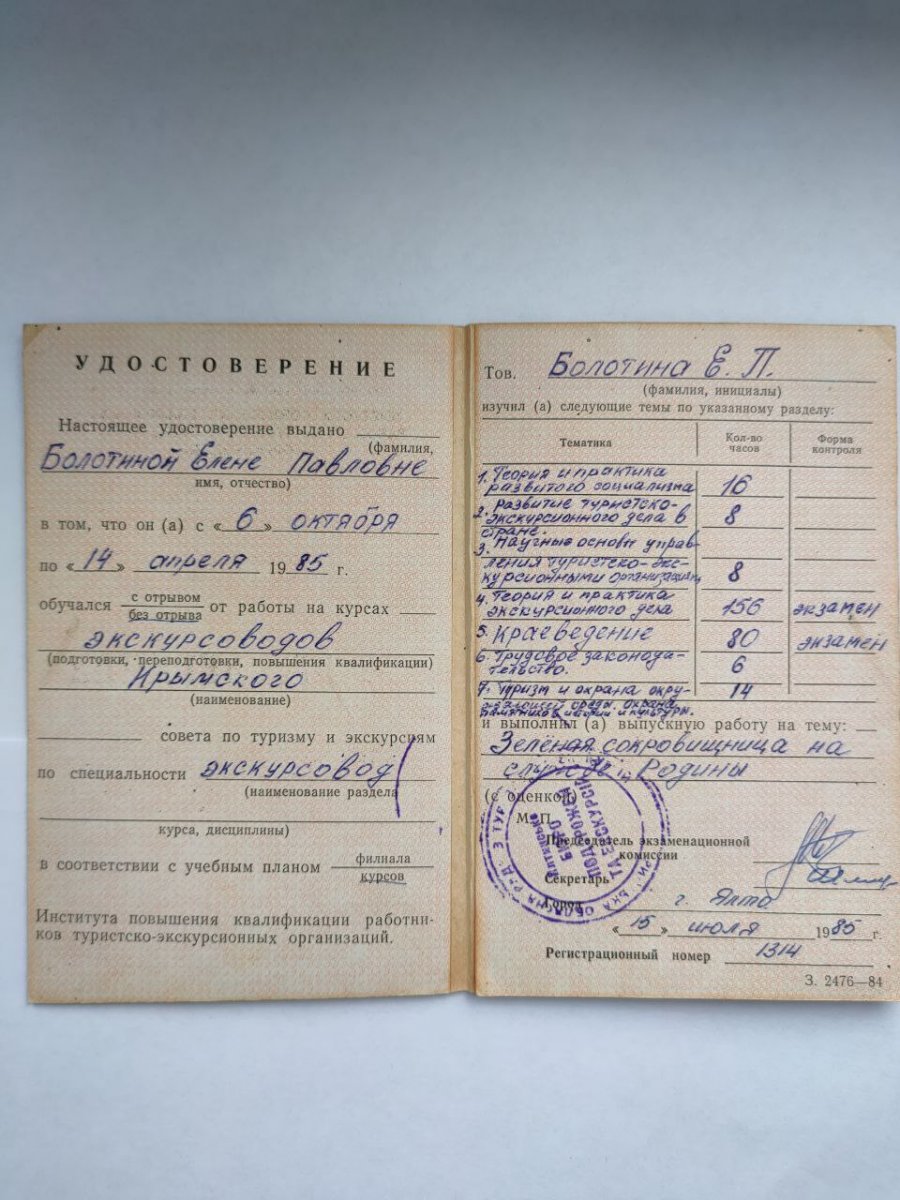 УДОСТОВЕРЕНИЕ
Настоящее удостоверение выдано
(фамилия,
Болотиной Елене Павловне
имя, отчество)
в том, что он (а) с «6» октября
по «14» апреля 1985 г.
обучался с отрывом
без отрыва от работы на курсах
экскурсоводов
(подготовки, переподготовки, повышения квалификации)
Крымского
(наименование)
совета по туризму и экскурсиям
по специальности экскурсовод
(наименование раздела
курса, дисциплины)
в соответствии с учебным планом филиала
курсов
Института повышения квалификации работни-
ков туристско-экскурсионных организаций.
Тов. Болотина Е. П.
(фамилия, инициалы)
изучил (а) следующие темы по указанному разделу:
Тематика Кол-во часов Форма контроля
1. Теория и практика
развитого социализма 16
2. развитие туристско-
экскурсионного дела в 8
стране.
3. Научные основы управ-
ления туристско-экс-
курсионными организациями 8
4. Теория и практика
экскурсионного дела 156 экзамен
5. Краеведение 80 экзамен
6. Трудовое законода-
тельство. 6
7. Туризм и охрана окру- 14
жающей среды, охрана
памятников истории и культуры.
и выполнил (а) выпускную работу на тему:
Зелёная сокровищница на
службе Родины
(с оценкой)
М. П.
Председатель экзаменационной
комиссии
Секретарь
Город г. Ялта
«15» июля 1985 г.
Регистрационный номер 1314
З. 2476—84
БЮРО
ПОДОРОЖЕЙ
ТА ЕКСКУРСІЙ